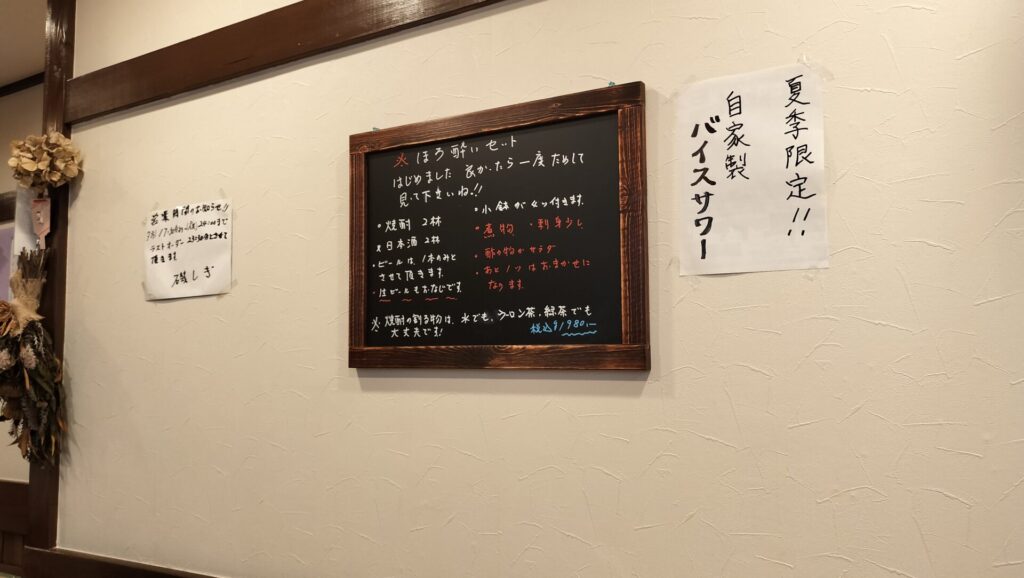 営業時間のお知らせ!!
ラストオーダー
頂きます
磯しぎ
※ ほろ酔いセット
はじめました 良かったら一度ためして
見て下さいね!!
・焼酎 2杯
日本酒 2杯
・ビールは1本のみと
させて頂きます。
・生ビールもおなじです。
・小鉢が4ツ付きます。
・煮物 ・刺身少し
・酢の物かサラダ
・あと1ツはおまかせに
なります。
※ 焼酎の割る物は、水でも、ウーロン茶、緑茶でも
大丈夫です!
税込¥1980,ー
夏季限定!!
自家製
バイスサワー